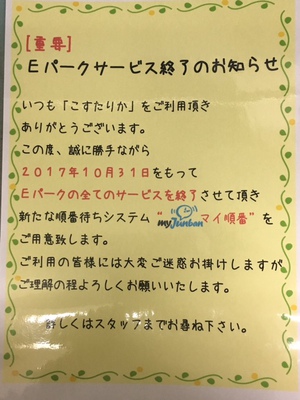 [重要]
Eパークサービス終了のお知らせ
いつも「こすたりか」をご利用頂き
ありがとうございます。
この度、誠に勝手ながら
2017年10月31日をもって
Eパークの全てのサービスを終了させて頂き
新たな順番待ちシステム“myJunbanマイ順番”を
ご用意致します。
ご利用の皆様には大変ご迷惑お掛けしますが
ご理解の程よろしくお願いいたします。
詳しくはスタッフまでお尋ね下さい。